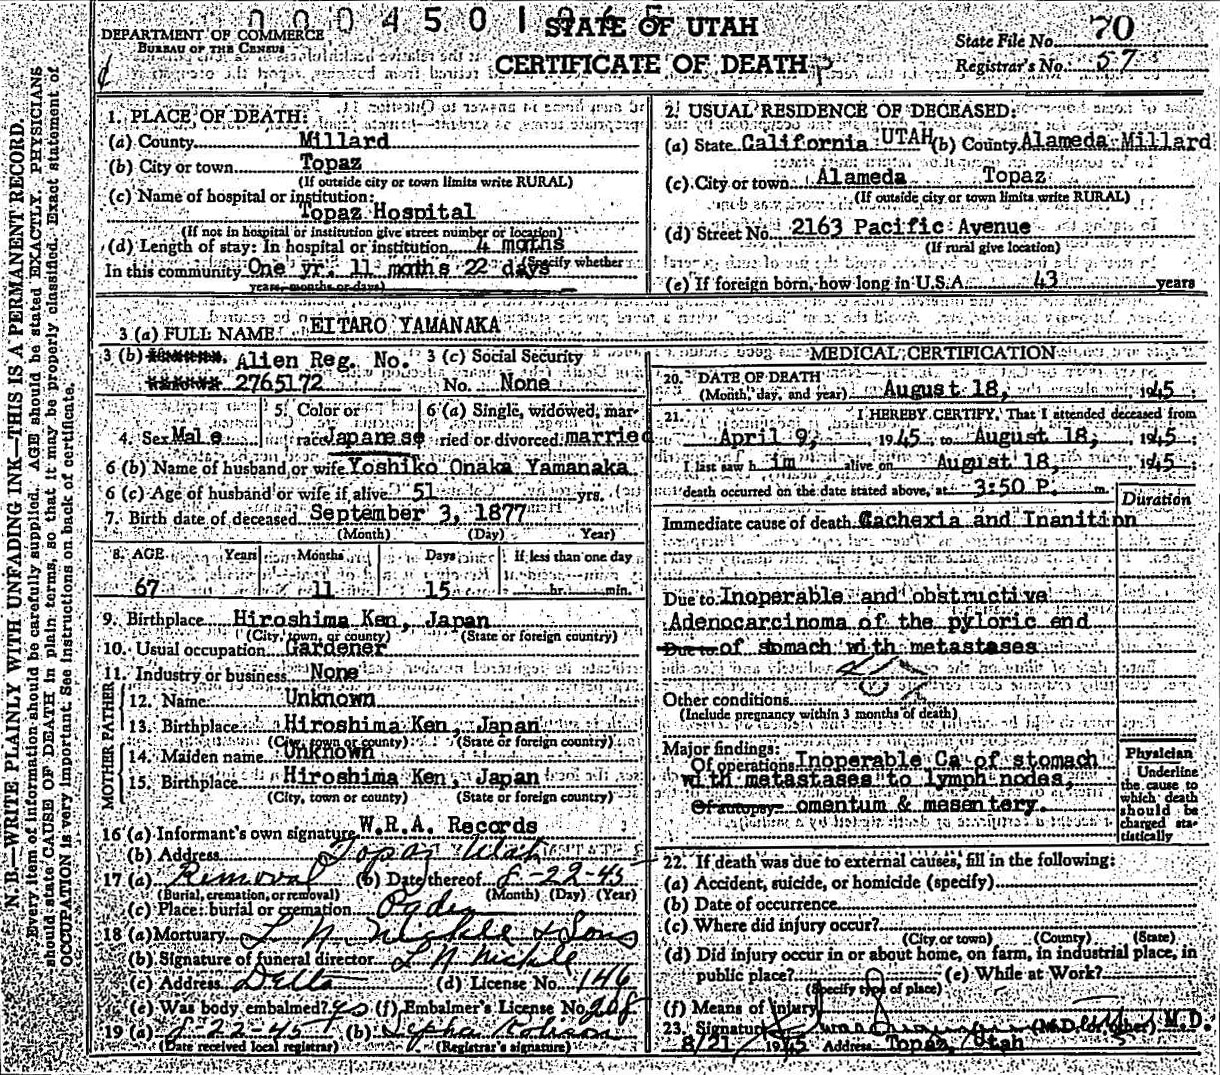 0 0 0 4 5 0 1
STATE OF UTAH
DEPARTMENT OF COMMERCE
BUREAU OF THE CENSUS
CERTIFICATE OF DEATH
State File No. 70
Registrar's No. 57
N. B.—WRITE PLAINLY WITH UNFADING INK—THIS IS A PERMANENT RECORD.
Every item of information should be carefully supplied. AGE should be stated EXACTLY. PHYSICIANS
should state CAUSE OF DEATH in plain terms, so that it may be properly classified. Exact statement of
OCCUPATION is very important. See instructions on back of certificate.
1. PLACE OF DEATH:
(a) County Millard
(b) City or town Topaz
(If outside city or town limits write RURAL)
(c) Name of hospital or institution:
Topaz Hospital
(If not in hospital or institution give street number or location)
(d) Length of stay: In hospital or institution 4 moths
(Specify whether
In this community One yr. 11 moths 22 days
years, months or days)
2. USUAL RESIDENCE OF DECEASED:
(a) State California UTAH (b) County Alameda Millard
(c) City or town Alameda Topaz
(If outside city or town limits write RURAL)
(d) Street No. 2163 Pacific Avenue
(If rural give location)
(e) If foreign born, how long in U.S.A. 43 years
3 (a) FULL NAME EITARO YAMANAKA
3 (b) Alien Reg. No. 2765172
3 (c) Social Security
No. None
4. Sex Male
5. Color or
race Japanese
6 (a) Single, widowed, mar-
ried or divorced married
6 (b) Name of husband or wife Yoshiko Onaka Yamanaka
6 (c) Age of husband or wife if alive 51 yrs.
7. Birth date of deceased September 3, 1877
(Month) (Day) (Year)
8. AGE Years Months Days If less than one day
67 11 15 hr. min.
9. Birthplace Hiroshima Ken, Japan
(City, town, or county) (State or foreign country)
10. Usual occupation Gardener
11. Industry or business None
FATHER
12. Name Unknown
13. Birthplace Hiroshima Ken, Japan
(City, town or county) (State or foreign country)
MOTHER
14. Maiden name Unknown
15. Birthplace Hiroshima Ken, Japan
(City, town or county) (State or foreign country)
16 (a) Informant's own signature W.R.A. Records
(b) Address Topaz Utah
17 (a) Removal (b) Date thereof 8-22-45
(Burial, cremation, or removal) (Month) (Day) (Year)
(c) Place: burial or cremation Ogden
18 (a) Mortuary L N Nickle & Sons
(b) Signature of funeral director L N Nickle
(c) Address Delta (d) License No. 146
(e) Was body embalmed? yes (f) Embalmer's License No. 208
19 (a) 8-22-45 (b)
(Date received local registrar) (Registrar's signature)
MEDICAL CERTIFICATION
20. DATE OF DEATH
(Month, day, and year) August 18, 1945
21. I HEREBY CERTIFY, That I attended deceased from
April 9, 1945 to August 18, 1945;
I last saw him alive on August 18, 1945;
death occurred on the date stated above, at 3:50 P. m.
Duration
Immediate cause of death Cachexia and Inanition
Due to Inoperable and obstructive
Adenocarcinoma of the pyloric end
Due to of stomach with metastases
Other conditions
(Include pregnancy within 3 months of death)
Major findings:
Of operations Inoperable Ca of stomach
with metastases to lymph nodes,
Of autopsy omentum & mesentery.
Physician
Underline
the cause to
which death
should be
charged sta-
tistically
22. If death was due to external causes, fill in the following:
(a) Accident, suicide, or homicide (specify)
(b) Date of occurrence
(c) Where did injury occur?
(City or town) (County) (State)
(d) Did injury occur in or about home, on farm, in industrial place, in
public place? (e) While at Work?
(Specify type of place)
(f) Means of injury
23. Signature (M.D. or other) M.D.
8/21 1945 Address Topaz, Utah